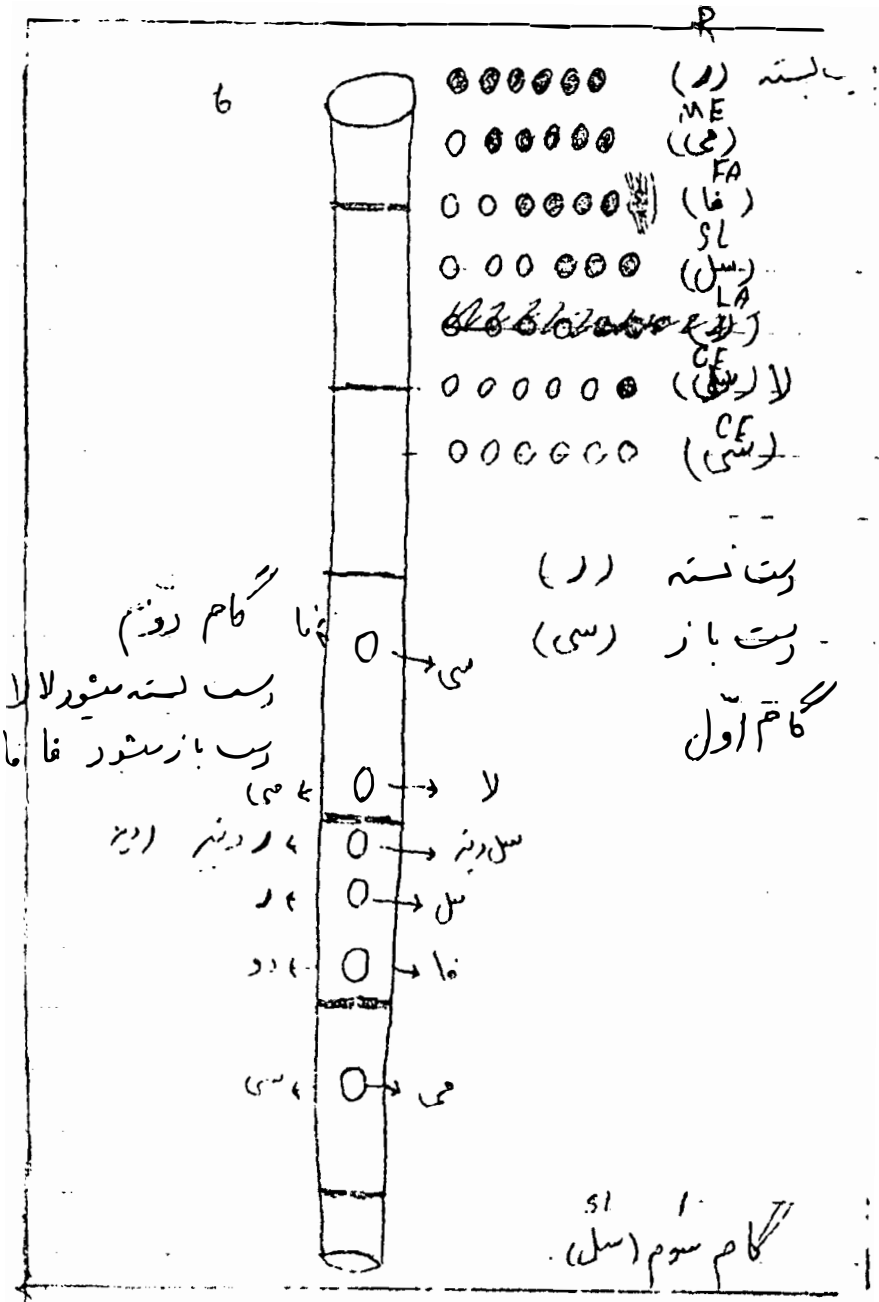 R
بسته (ر)
ME
(می)
FA
(فا)
SL
(سل)
LA
CE
لا (سی)
CE
(سی)
6
دست بسته (ر)
دست باز (سی)
گام اوّل
گام دوّم
دست بسته میشود لا لا
دست باز میشود فا فا
فا
سی
می
لا
ر دیز
سل دیز
ر
سل
دو
فا
سی
می
Sl
گام سوم (سل)